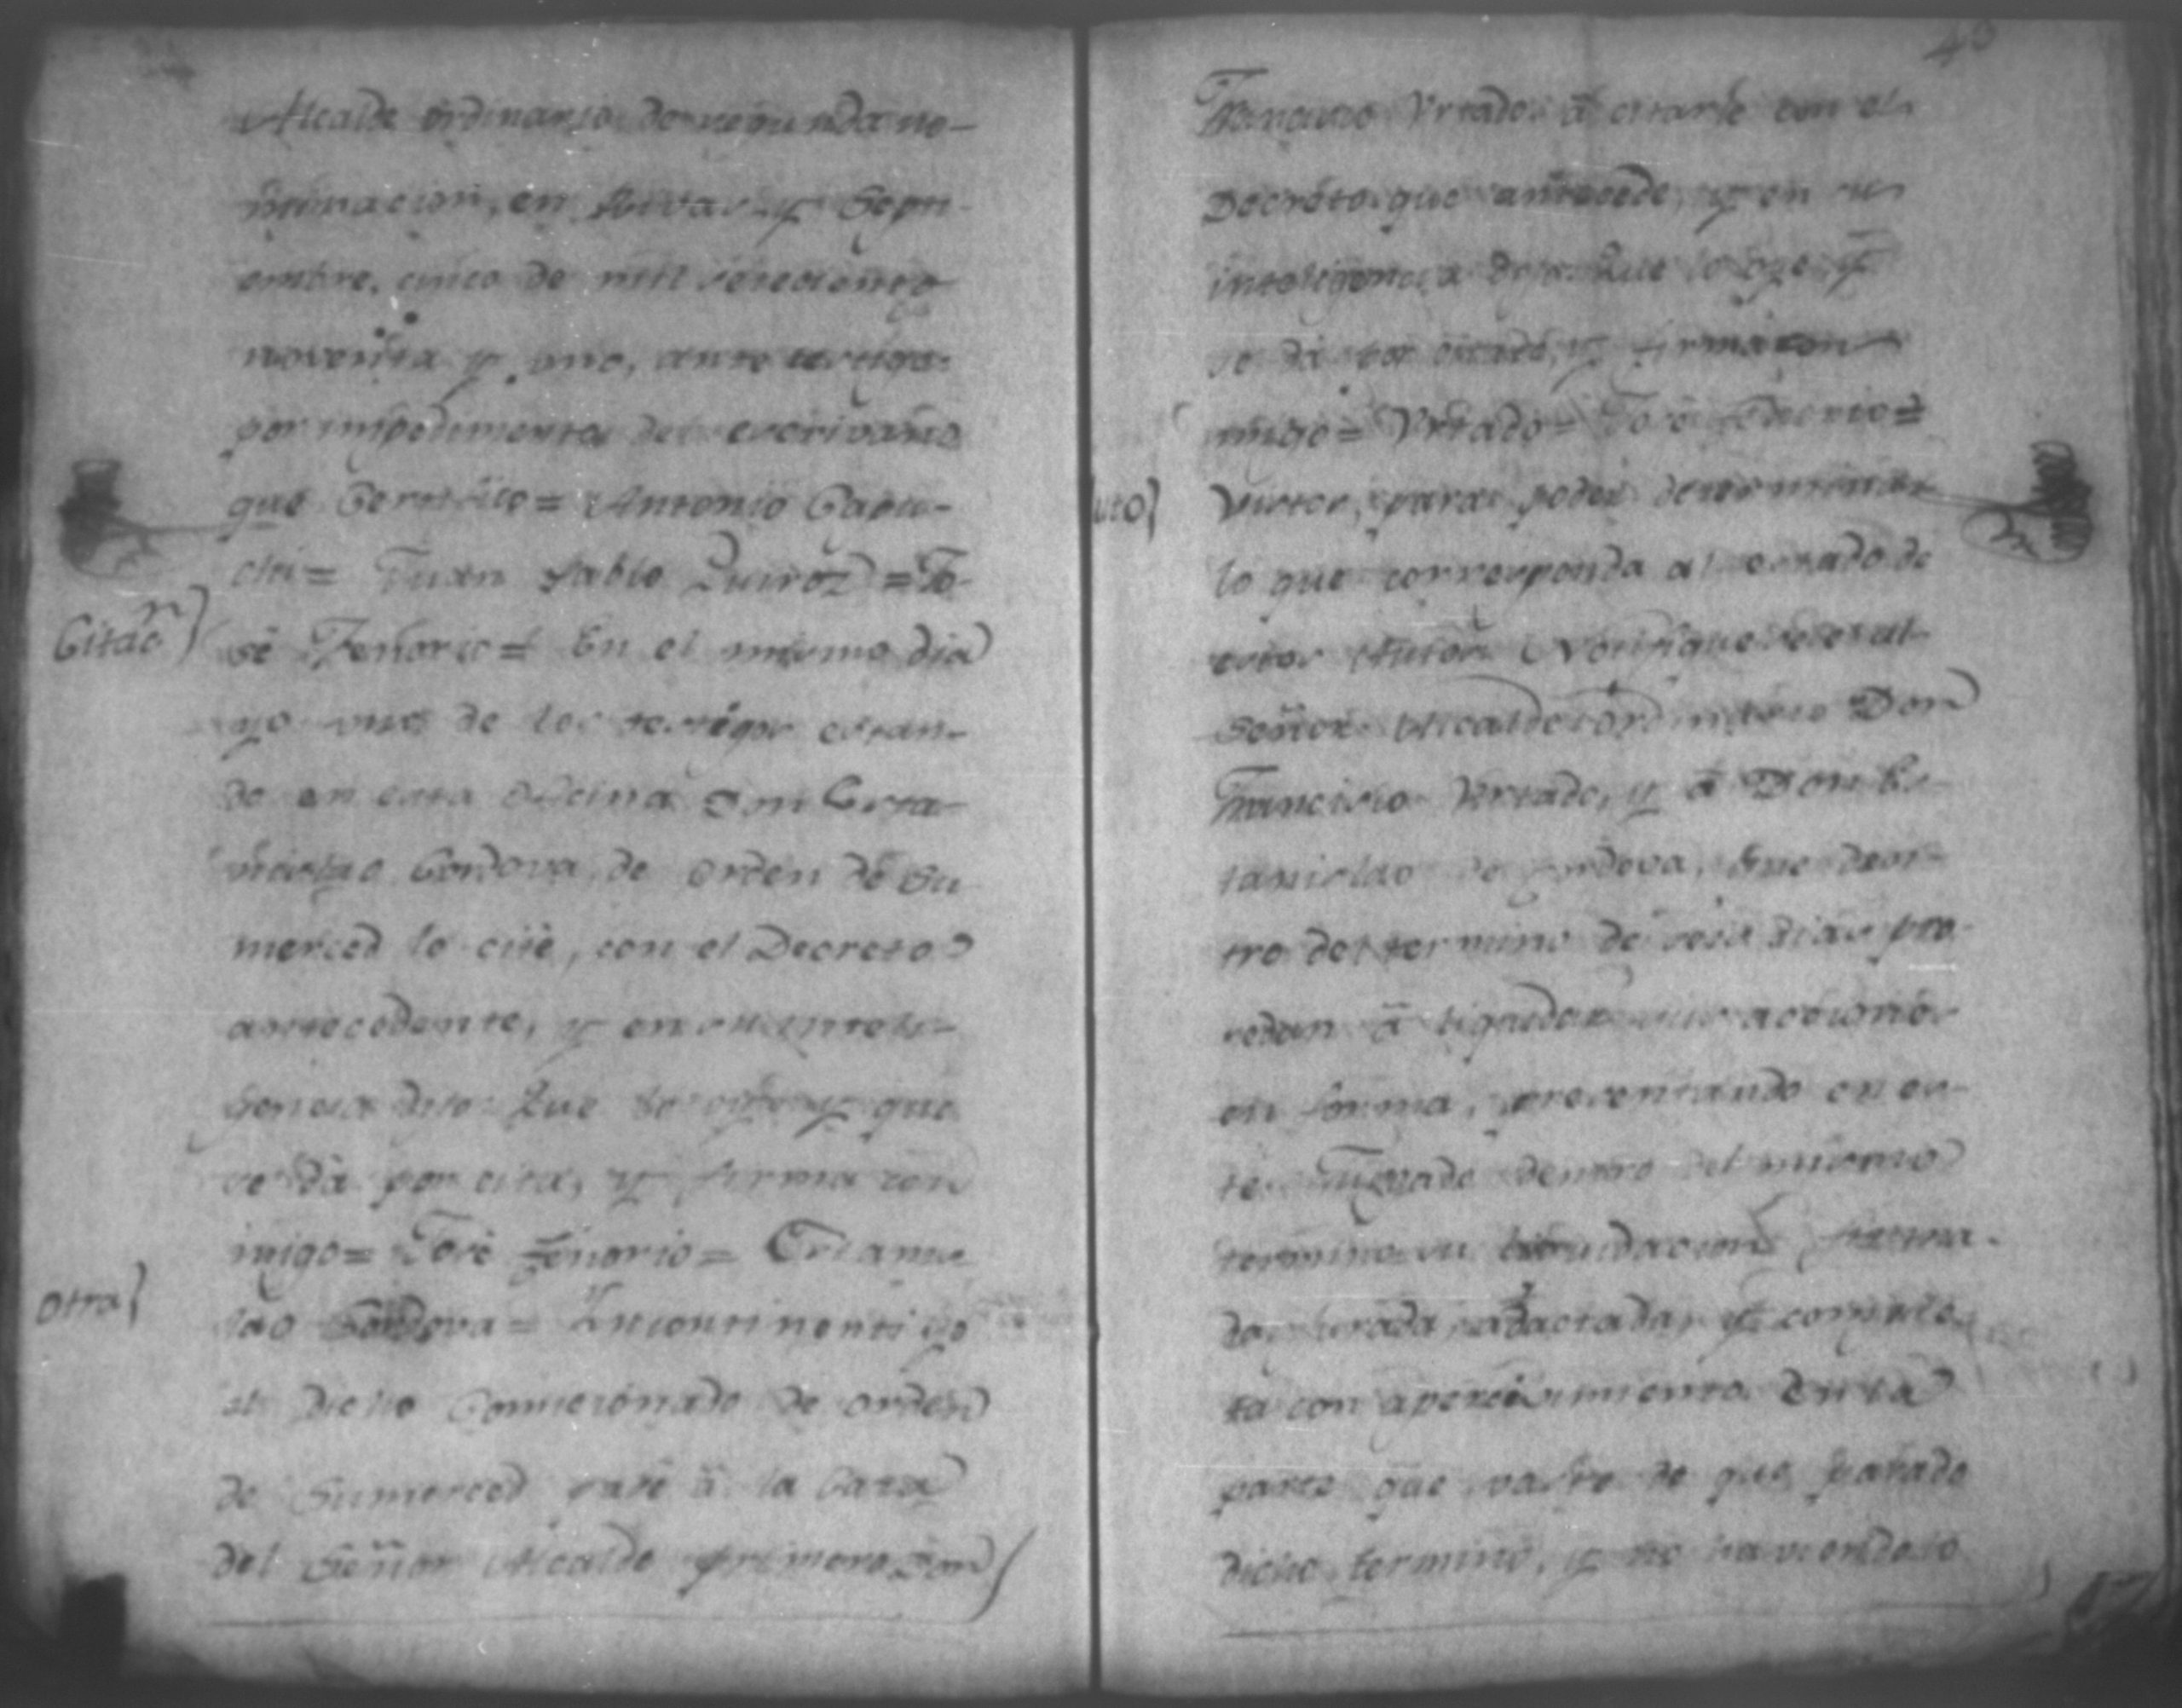 Alcalde ordinario de segunda no-
minacion, en Rivas y Septi-
embre, cinco de mill setecientos
noventa y uno, ante testigos
por impedimento del escrivano
que Certifico = Antonio Capu-
chi = Juan Pablo Quiroz = Jo-
Citacn)
sé Tenorio = En el mismo dia
yo uno de los testigos estan-
do en esta oficina Don Esta-
nislao Cordova de orden de Su
merced lo cité, con el Decreto
antecedente, y en su inteli-
gencia dijo: Que lo oye y que
se dá por cita, y firma con
migo = José Tenorio = Estanis-
Otra)
lao Cordova = Incontinenti yo
el dicho Comicionado de orden
de Sumerced pasé á la Casa
del Señor Alcalde primero Don
40
Francisco Vrtado á citarle con el
Decreto que antecede, y en su
inteligencia dijo: Que lo oye y
se dá por citado, y firma con
migo = Vrtado = José Tenorio =
uto)
Vistos, para poder determinar
lo que corresponda al estado de
estos Autos Notifiquesele al
Señor Alcalde ordinario Don
Francisco Vrtado, y á Don Es-
tanislao de Cordova, que den-
tro del termino de seis dias pro-
cedan á liquidar sus acciones
en forma, presentando en es-
te Juzgado dentro del mismo
termino su liquidacion firma-
da, jurada, y comple-
ta con apercivimiento En la
parte que vaste de que pasado
dicho termino, y no haviendolo